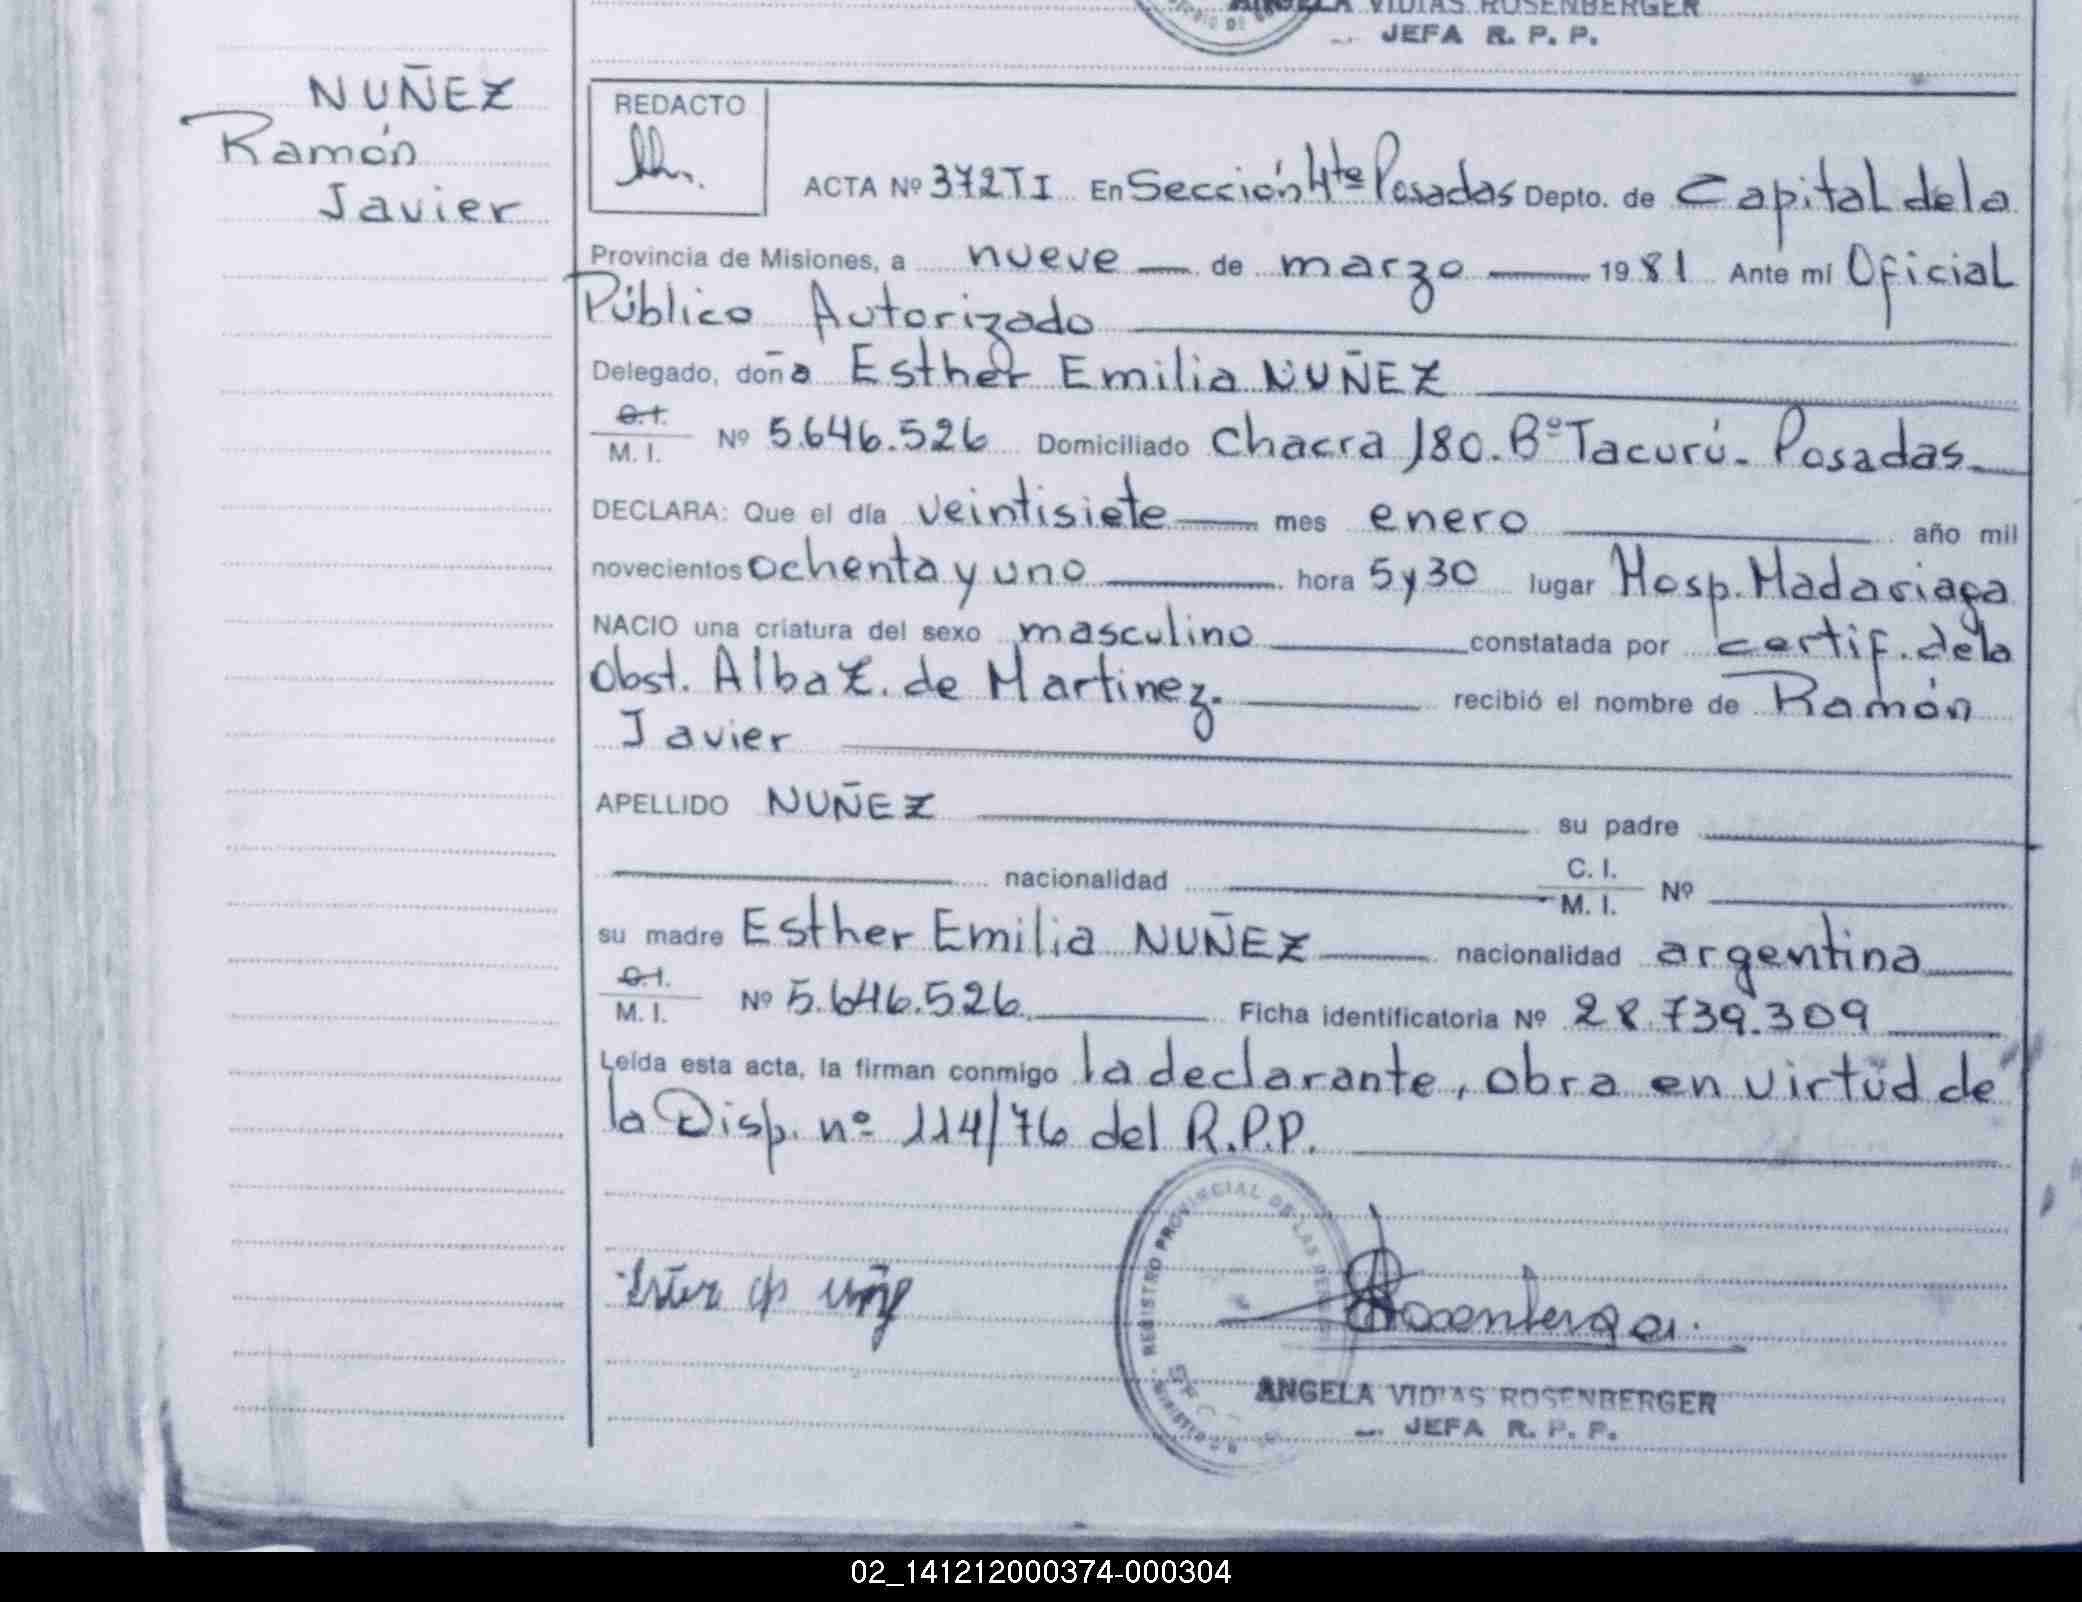 ANGELA VIDIAS ROSENBERGER
JEFA R. P. P.
NUÑEZ
Ramón
Javier
REDACTO
ACTA Nº 372TI En Sección 4ta Posadas Depto. de Capital de la
Provincia de Misiones, a nueve de marzo 1981 Ante mí Oficial
Público Autorizado
Delegado, doña Esther Emilia NUÑEZ
C.I.
M. I. Nº 5.646.526 Domiciliado Chacra 180. Bº Tacurú. Posadas
DECLARA: Que el día veintisiete mes enero año mil
novecientos ochenta y uno hora 5 y 30 lugar Hosp. Madariaga
NACIO una criatura del sexo masculino constatada por certif. de la
Obst. Alba Z. de Martinez. recibió el nombre de Ramón
Javier
APELLIDO NUÑEZ su padre
nacionalidad C. I.
M. I. Nº
su madre Esther Emilia NUÑEZ nacionalidad argentina
C.I.
M. I. Nº 5.646.526 Ficha identificatoria Nº 28.739.309
Leída esta acta, la firman conmigo la declarante, obra en virtúd de
la Disp. nº 114/76 del R.P.P.
REGISTRO PROVINCIAL DE LAS
Rosenberger
ANGELA VIDIAS ROSENBERGER
JEFA R. P. P.
02_141212000374-000304